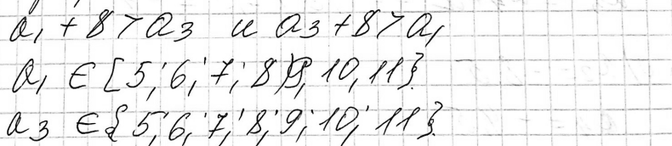 a₁ + 8 > a₃ и a₃ + 8 > a₁
a₁ ∈ {5; 6; 7; 8; 9; 10; 11}.
a₃ ∈ {5; 6; 7; 8; 9; 10; 11}.